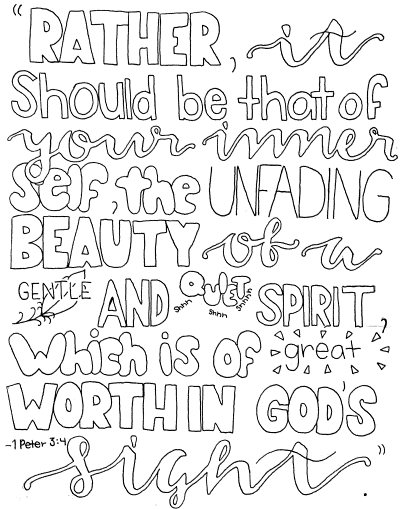 “RATHER, it
Should be that of
your inner
Self, the UNFADING
BEAUTY of a
GENTLE AND QUIET SPIRIT,
Shhh Shhh Shhhh
Which is of great
WORTH IN GOD'S
-1 Peter 3:4 sight”.